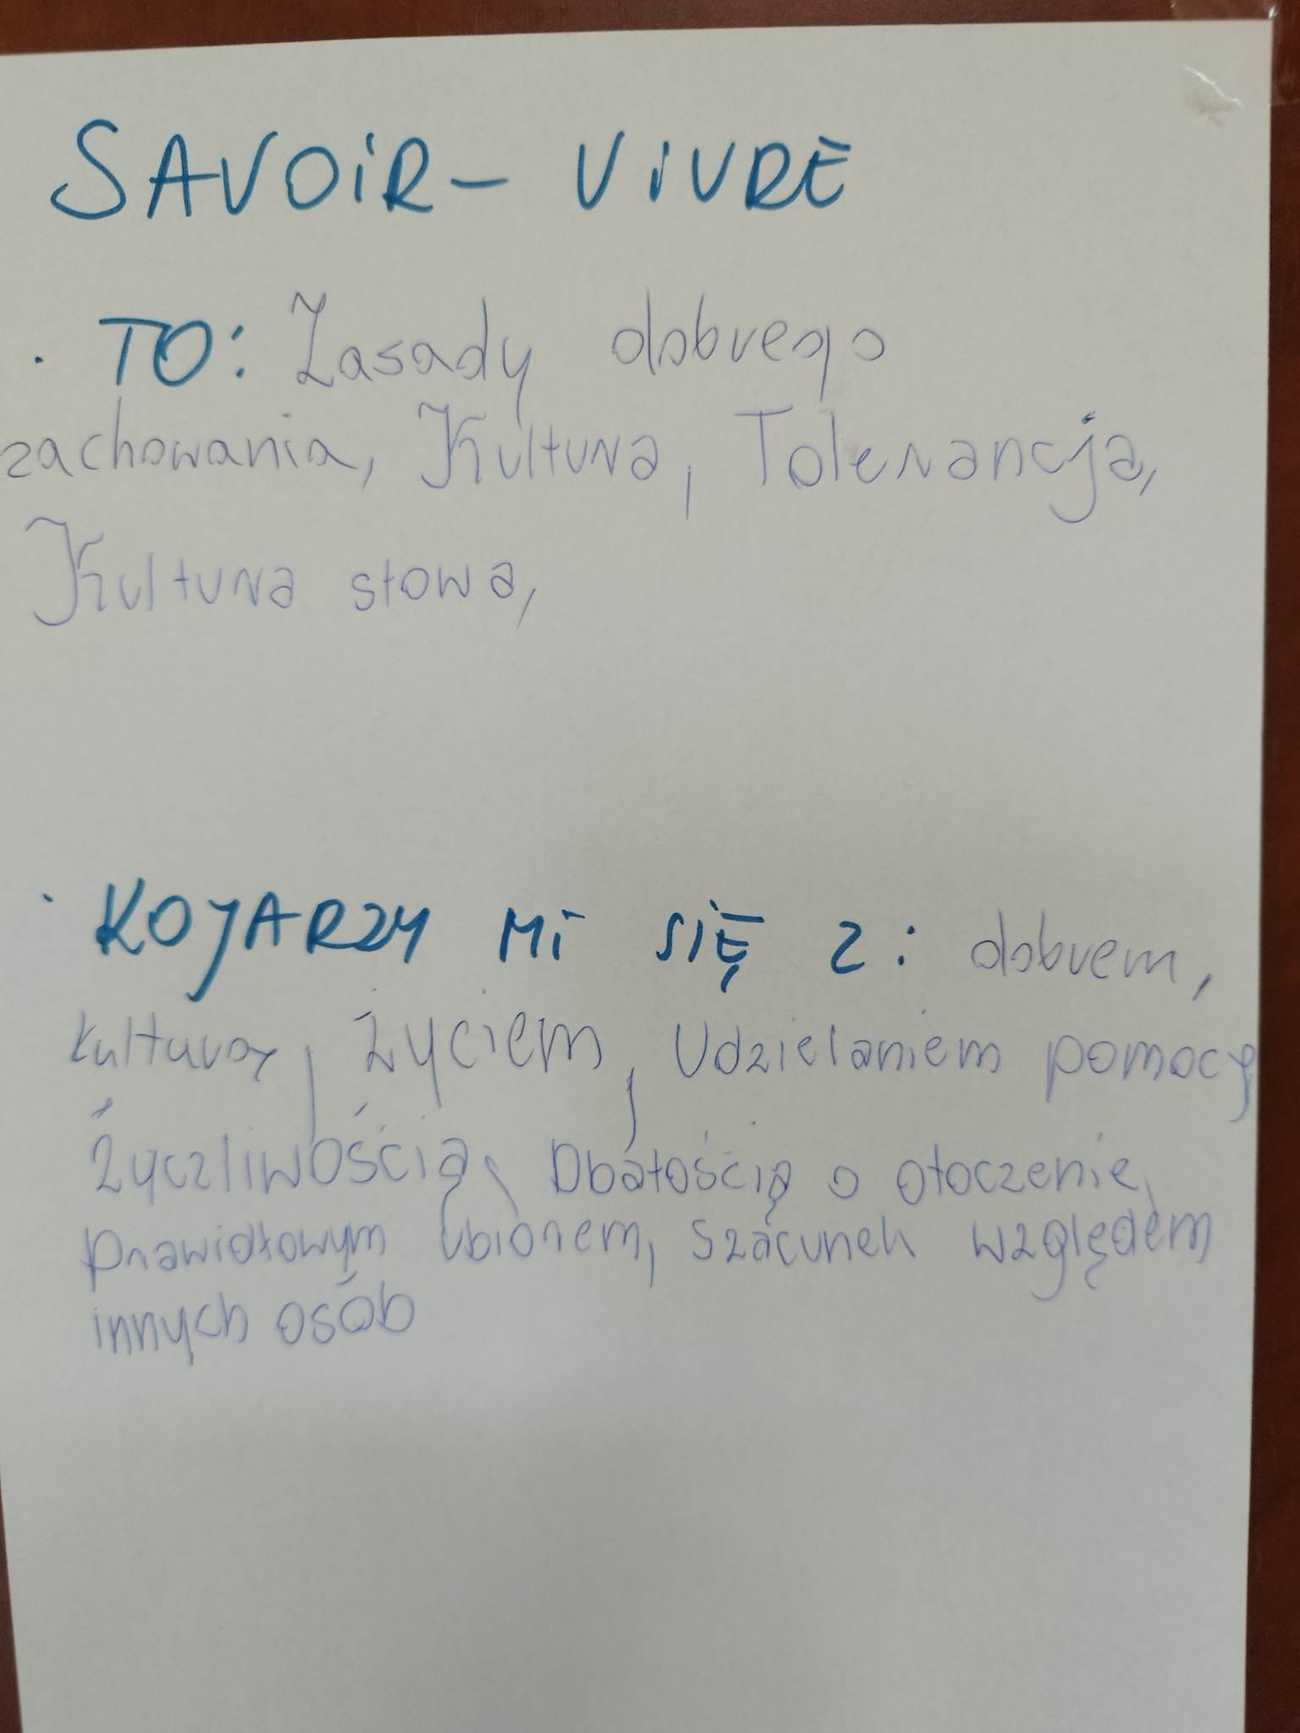 SAVOiR - ViVRE
· TO: Zasady dobrego
zachowania, Kultura, Tolerancja,
Kultura słowa,
· KOJARZY Mi SIĘ Z: dobrem,
kulturą, życiem, Udzielaniem pomocy
Życzliwością, Dbałością o otoczenie,
prawidłowym ubiorem, szacunek względem
innych osób